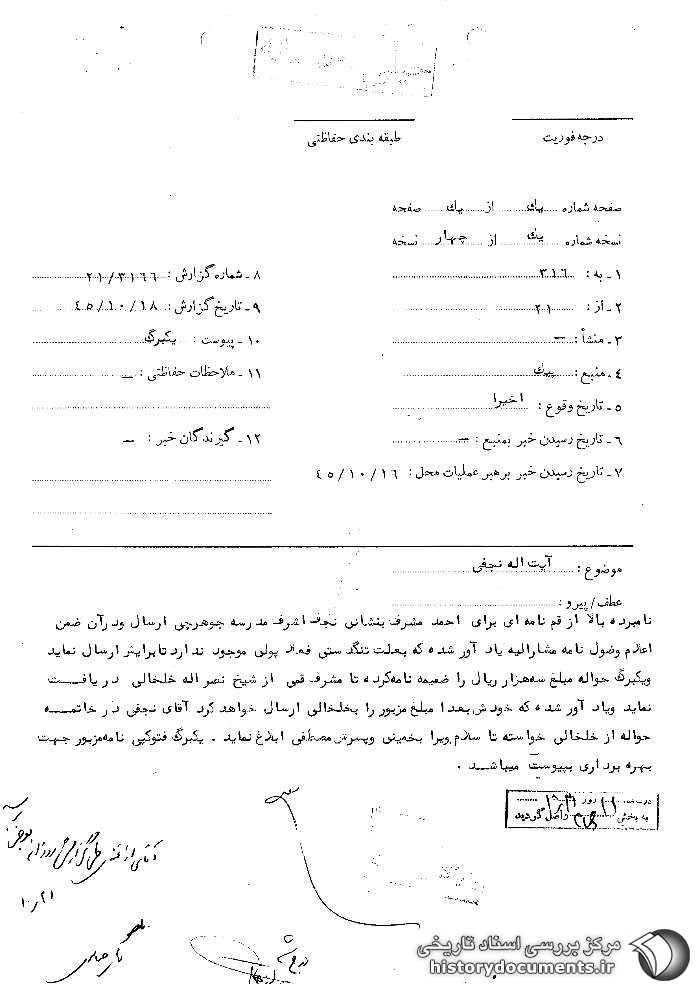 درجه فوریت
طبقه بندی حفاظتی
صفحه شماره یك از یك صفحه
نسخه شماره یك از چهار نسخه
۱ ـ به : ۳۱٦
۲ ـ از : ۲۱
۳ ـ منشأ : ــ
٤ ـ منبع : پیك
٥ ـ تاریخ وقوع : اخیرا
٦ ـ تاریخ رسیدن خبر بمنبع : ــ
۷ ـ تاریخ رسیدن خبر برهبر عملیات محل : ٤٥/۱۰/۱٦
۸ ـ شماره گزارش : ۲۱/۳۱٦٦
۹ ـ تاریخ گزارش : ٤٥/۱۰/۱۸
۱۰ ـ پیوست : یکبرگ
۱۱ ـ ملاحظات حفاظتی : ــ
۱۲ ـ گیرندگان خبر : ــ
موضوع : آیت اله نجفی
عطف/ پیرو :
نامبرده بالا از قم نامه ای برای احمد مشرف بنشانی نجف اشرف مدرسه جوهرچی ارسال ودرآن ضمن
اعلام وصول نامه مشارالیه یاد آور شده که بعلت تنگدستی فعلا پولی موجود ندارد تابرایش ارسال نماید
ویکبرگ حواله مبلغ سه هزار ریال را ضمیمه نامه کرده تا مشرف قمی از شیخ نصراله خلخالی دریافت
نماید ویاد آور شده که خودش بعدا مبلغ مزبور را بخلخالی ارسال خواهد کرد آقای نجفی در خاتمه
حواله از خلخالی خواسته تا سلام ویرا بخمینی وپسرش مصطفی ابلاغ نماید . یکبرگ فتوکپی نامه مزبور جهت
بهره برداری بپیوست میباشد .
روز
به بخش واصل گردید
۲۱ر۱۰
مرکز بررسی اسناد تاریخی
historydocuments.ir